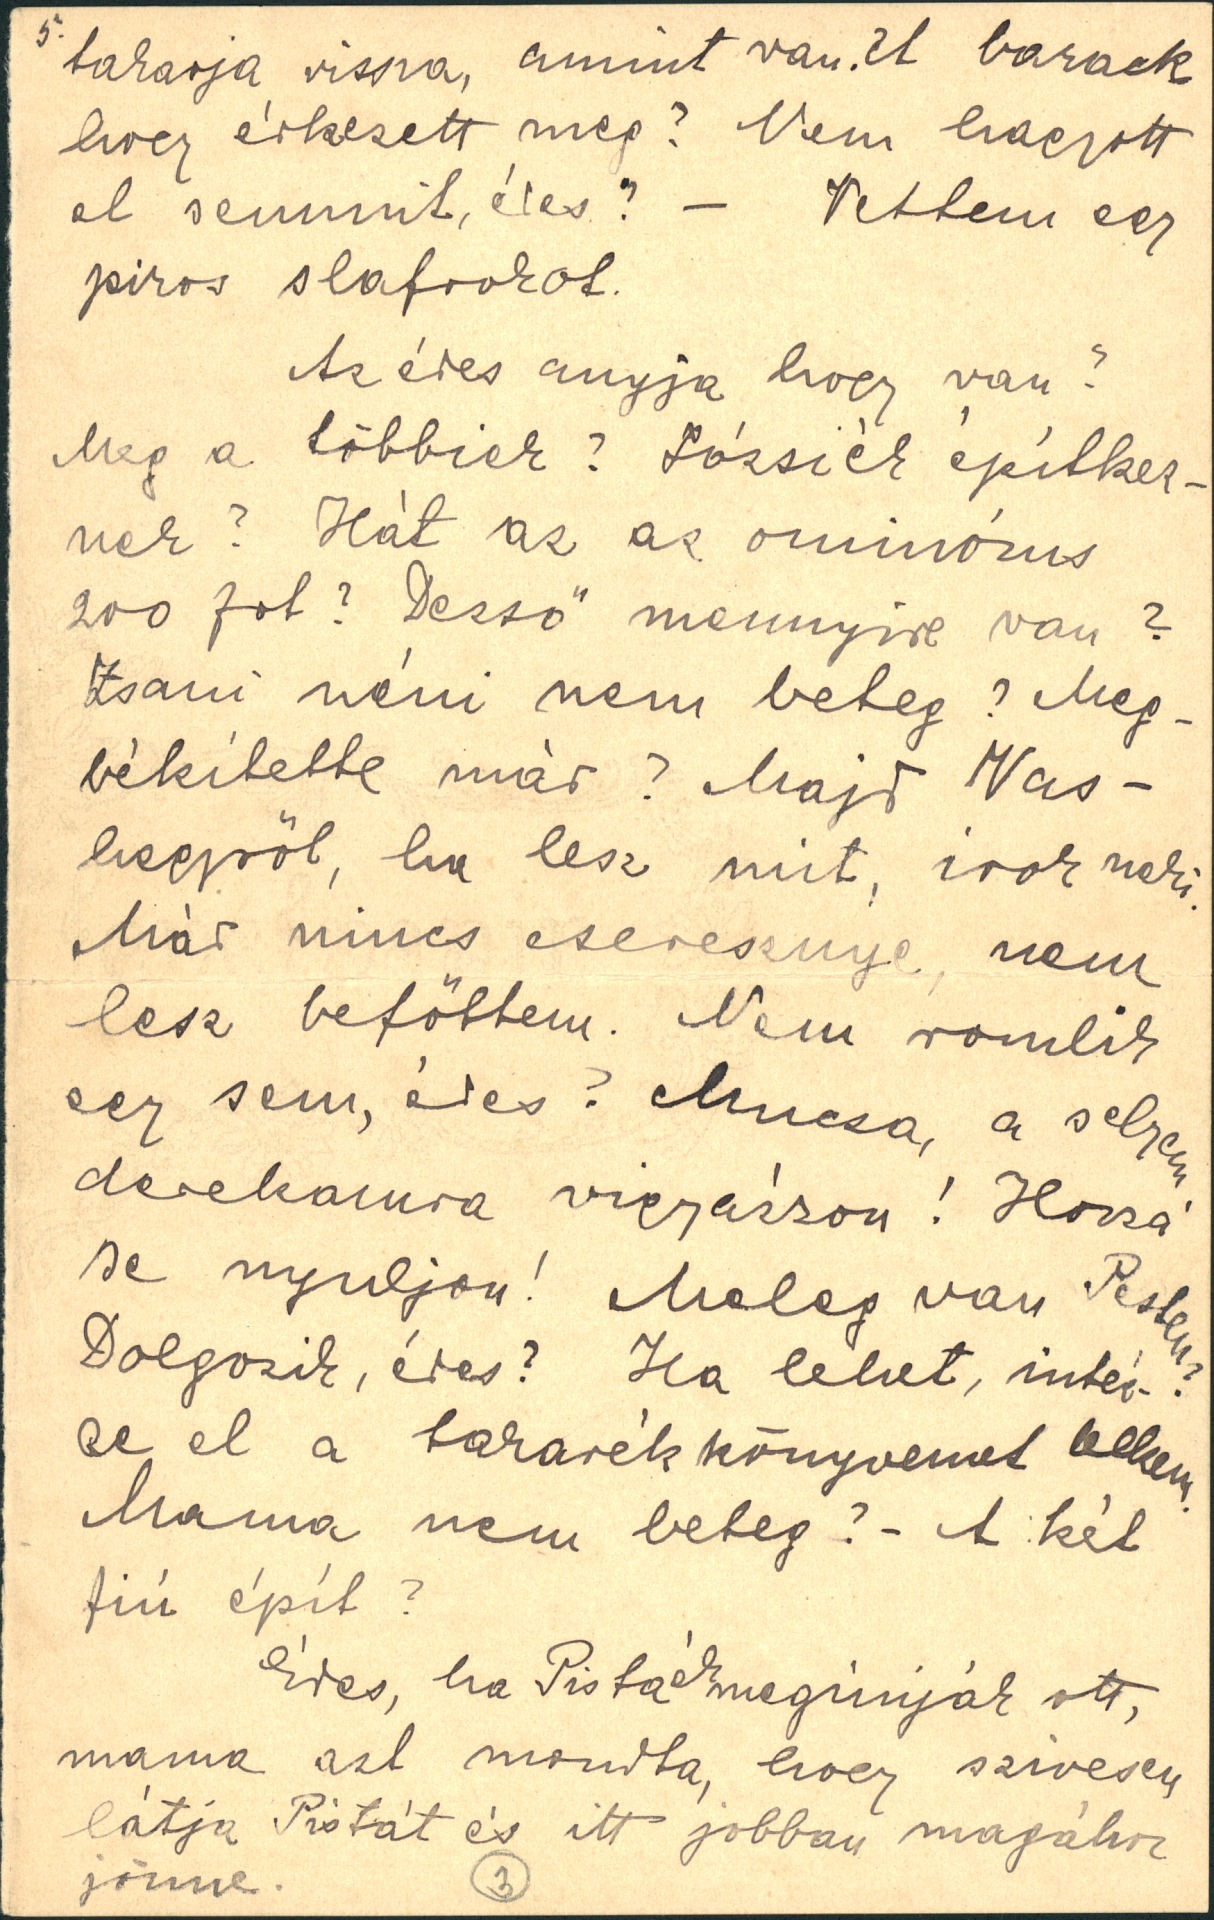 5.
takarja vissza, amint van. A barack
hogy érkezett meg? Nem hagyott
el semmit, édes? — Vettem egy
piros slafrokot.
Az édes anyja hogy van?
Meg a többiek? Józsiék építkez-
nek? Hát az az ominózus
200 fot? Dezső mennyire van?
Zsani néni nem beteg? Meg-
békítette már? Majd Vas-
hegyről, ha lesz mit, írok neki.
Már nincs cseresznye, nem
lesz befőttem. Nem romlik
egy sem, édes? Mucsa, a selyem
derekamra vigyázzon! Hozzá
se nyuljon! Meleg van Pesten?
Dolgozik, édes? Ha lehet, intéz-
ze el a takarékkönyvemet lelkem.
Mama nem beteg? - A két
fiú épít?
Édes, ha Pistáék megúnják ott,
mama azt mondta, hogy szivesen
látja Pistát és itt jobban magához
jönne.
3